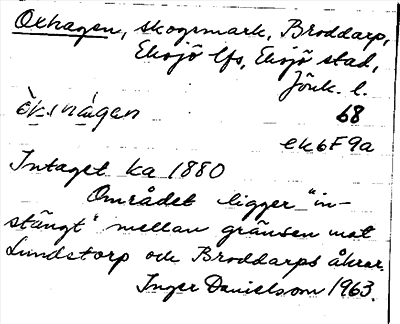 Oxhagen, skogsmark, Broddarp,
Eksjö lfs, Eksjö stad,
Jönk. l.
68
ek6F9a
Intaget ka 1880
Området ligger "in-
stängt" mellan gränsen mot
Lundstorp och Broddarps åkrar.
Inger Danielsson 1963.